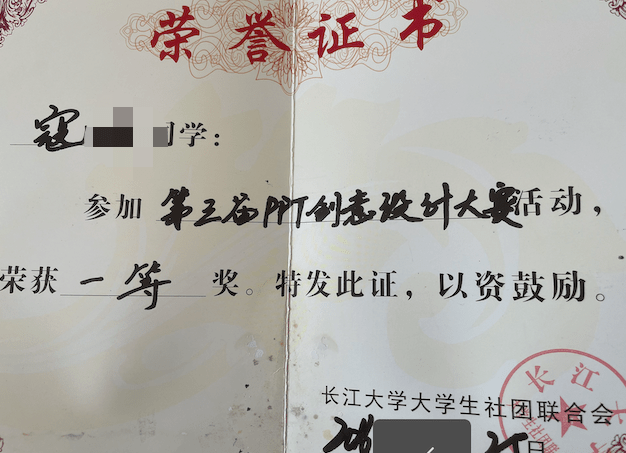 荣誉证书
寇 同学:
参加 第三届PPT创意设计大赛活动,
荣获 一等 奖。特发此证,以资鼓励。
长江大学大学生社团联合会
日
长江大